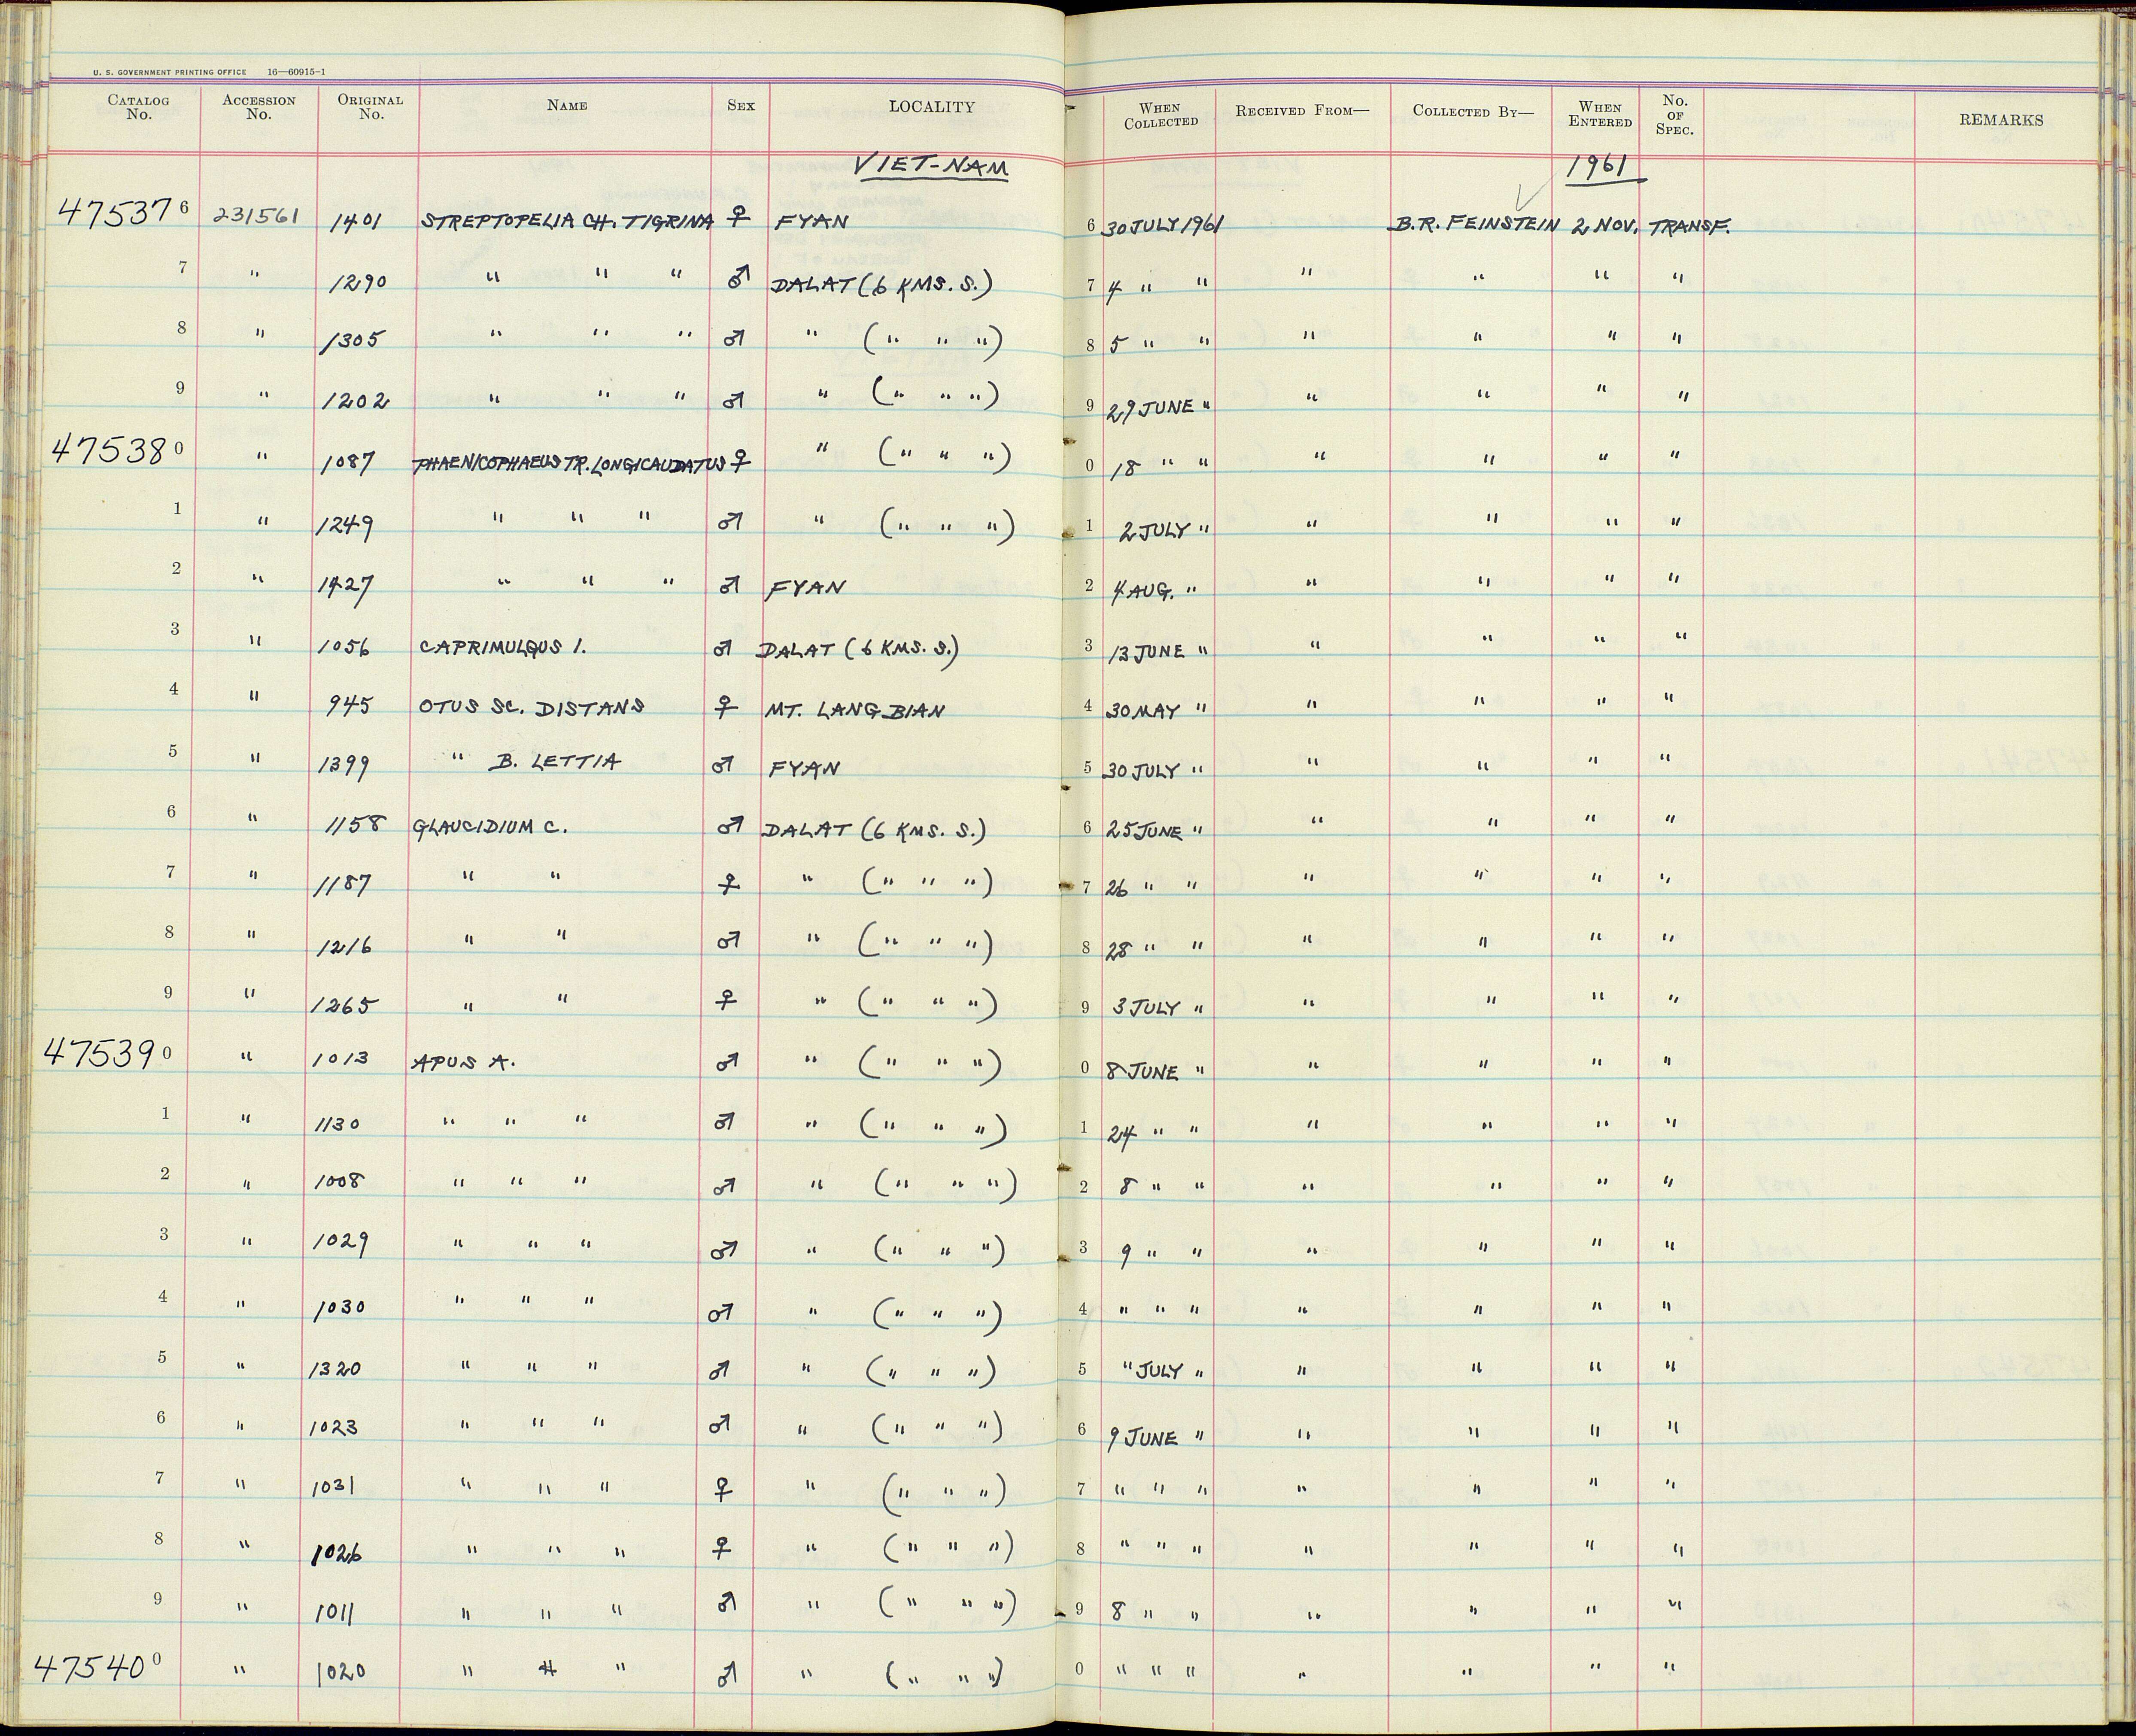 U. S. GOVERNMENT PRINTING OFFICE 16—60915-1
CATALOG No. ACCESSION No. ORIGINAL No. NAME SEX LOCALITY WHEN COLLECTED RECEIVED FROM— COLLECTED BY— WHEN ENTERED No. OF SPEC. REMARKS
VIET-NAM 1961
475376 231561 1401 STREPTOPELIA CH. TIGRINA ♀ FYAN 6 30 JULY 1961 B.R. FEINSTEIN 2 NOV. TRANSF.
7 " 1290 " " " ♂ DALAT (6 KMS. S.) 7 4 " " " " " "
8 " 1305 " " " ♂ " (" " ") 8 5 " " " " " "
9 " 1202 " " " ♂ " (" " ") 9 29 JUNE " " " " "
475380 " 1087 PHAENICOPHAEUS TR. LONGICAUDATUS ♀ " (" " ") 0 18 " " " " " "
1 " 1249 " " " ♂ " (" " ") 1 2 JULY " " " " "
2 " 1427 " " " ♂ FYAN 2 4 AUG. " " " " "
3 " 1056 CAPRIMULGUS I. ♂ DALAT (6 KMS. S.) 3 13 JUNE " " " " "
4 " 945 OTUS SC. DISTANS ♀ MT. LANG BIAN 4 30 MAY " " " " "
5 " 1399 " B. LETTIA ♂ FYAN 5 30 JULY " " " " "
6 " 1158 GLAUCIDIUM C. ♂ DALAT (6 KMS. S.) 6 25 JUNE " " " " "
7 " 1187 " " ♀ " (" " ") 7 26 " " " " " "
8 " 1216 " " ♂ " (" " ") 8 28 " " " " " "
9 " 1265 " " ♀ " (" " ") 9 3 JULY " " " " "
475390 " 1013 APUS A. ♂ " (" " ") 0 8 JUNE " " " " "
1 " 1130 " " " ♂ " (" " ") 1 24 " " " " " "
2 " 1008 " " " ♂ " (" " ") 2 8 " " " " " "
3 " 1029 " " " ♂ " (" " ") 3 9 " " " " " "
4 " 1030 " " " ♂ " (" " ") 4 " " " " " " "
5 " 1320 " " " ♂ " (" " ") 5 " JULY " " " " "
6 " 1023 " " " ♂ " (" " ") 6 9 JUNE " " " " "
7 " 1031 " " " ♀ " (" " ") 7 " " " " " " "
8 " 1026 " " " ♀ " (" " ") 8 " " " " " " "
9 " 1011 " " " ♂ " (" " ") 9 8 " " " " " "
475400 " 1020 " " " ♂ " (" " ") 0 " " " " " " "